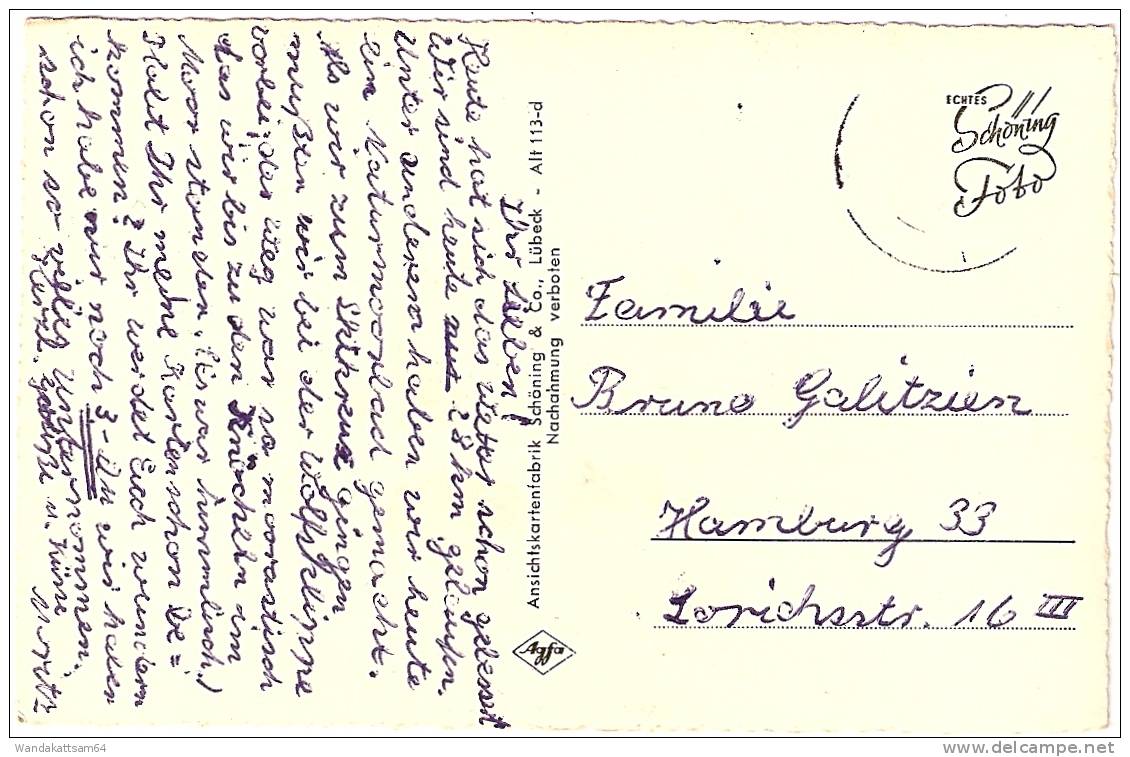 Ihr Lieben!
Heute hat sich das Wetter schon gebessert
Wir sind heute 28 km gelaufen.
Unter anderem haben wir heute
ein Naturmoorbad gemacht.
Als wir zum Skikreuz gingen
mußten wir bei der Wolfsklippe
vorbei, der Weg war so moorastisch
das wir bis zu den Knöcheln im
Moor standen. (Es war himmlisch.)
Habt Ihr meine Karten schon be=
kommen? Ihr werdet Euch wundern
ich habe nur noch 3,-DM wir haben
schon so vieles Unternommen.
Herzl. Grüße u. Küsse
Moritz
Ansichtskartenfabrik Schöning & Co., Lübeck - Alt 113-d
Nachahmung verboten
Agfa
ECHTES
Schöning
Foto
Familie
Bruno Galitzien
Hamburg 33
Lorichsstr. 16 III
Wandakattsam64
www.delcampe.net